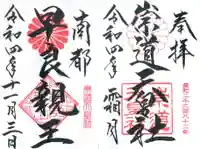 奉拝
崇道天皇社
令和四年 霜月
南都
早良親王
令和四年十一月三日